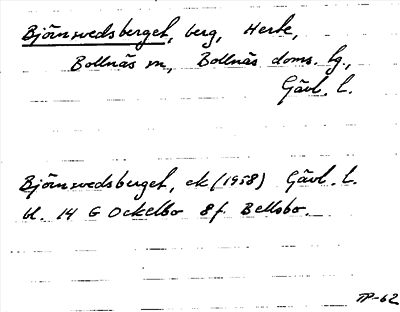 Björnsvedsberget, berg, Herte,
Bollnäs sn, Bollnäs doms. tg.,
Gävl. l.
Björnsvedsberget, ek (1958) Gävl. l.
bl. 14 G Ockelbo 8f Bellsbo.
TP-62